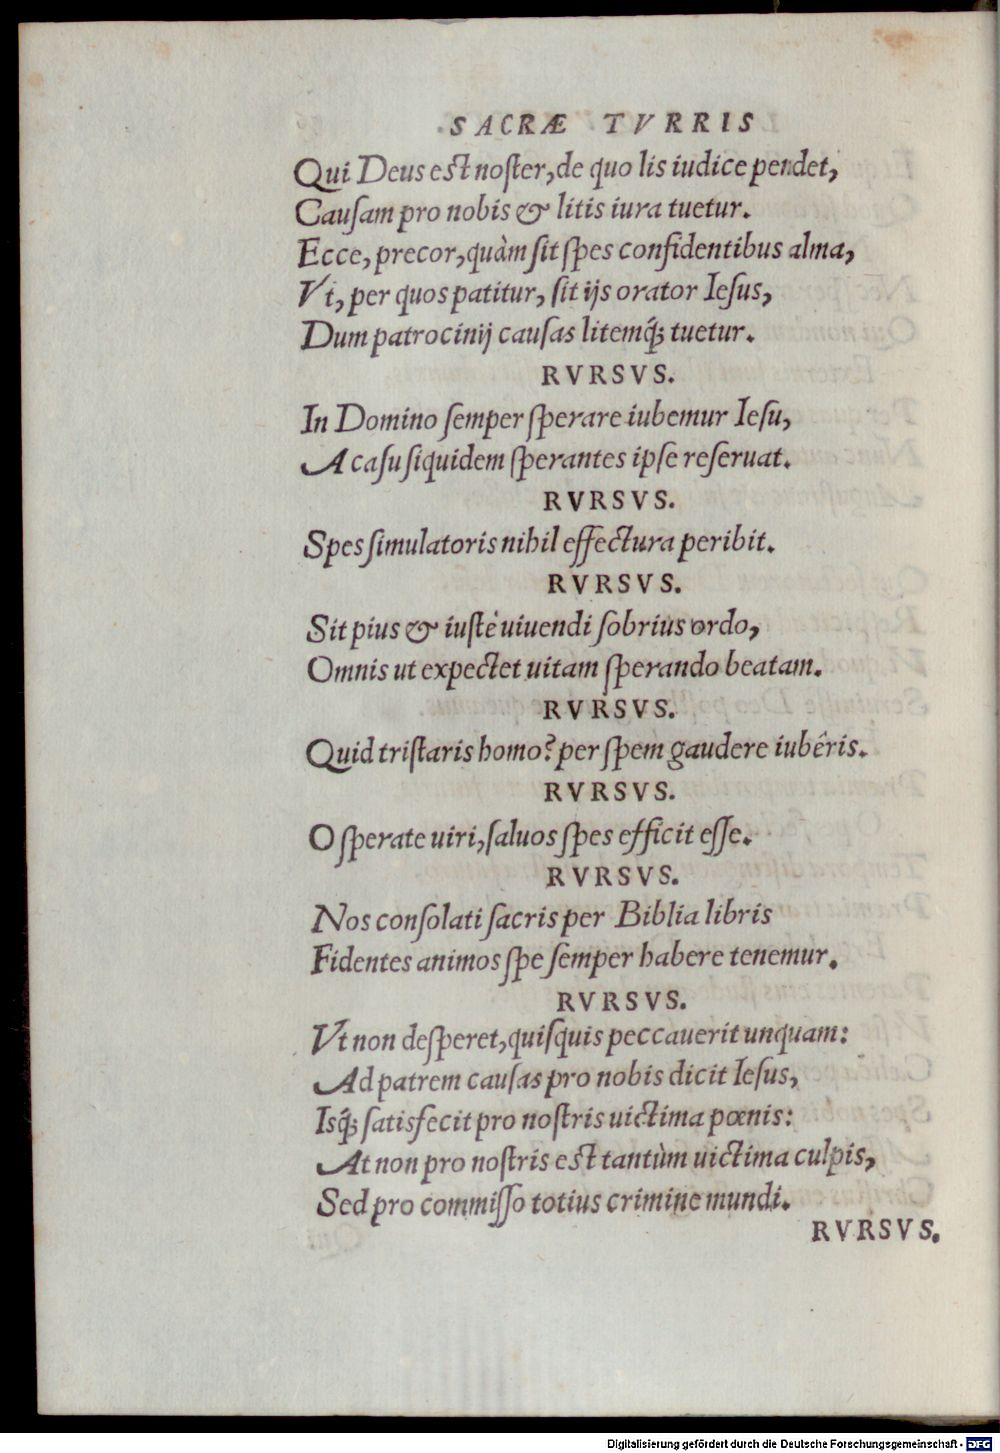 SACRÆ TVRRIS
Qui Deus est noſter, de quo lis iudice pendet,
Cauſam pro nobis & litis iura tuetur.
Ecce, precor, quàm ſit ſpes confidentibus alma,
Vt, per quos patitur, ſit ijs orator Ieſus,
Dum patrocinij cauſas litemq́; tuetur.
RVRSVS.
In Domino ſemper ſperare iubemur Ieſu,
A caſu ſiquidem ſperantes ipſe reſeruat.
RVRSVS.
Spes ſimulatoris nihil effectura peribit.
RVRSVS.
Sit pius & iuſtè uiuendi ſobrius ordo,
Omnis ut expectet uitam ſperando beatam.
RVRSVS.
Quid triſtaris homo? per ſpem gaudere iubêris.
RVRSVS.
O ſperate uiri, ſaluos ſpes efficit eſſe.
RVRSVS.
Nos conſolati ſacris per Biblia libris
Fidentes animos ſpe ſemper habere tenemur.
RVRSVS.
Vt non deſperet, quiſquis peccauerit unquam:
Ad patrem cauſas pro nobis dicit Ieſus,
Isq́; ſatisfecit pro noſtris uictima pœnis:
At non pro noſtris est tantùm uictima culpis,
Sed pro commiſſo totius crimine mundi.
RVRSVS.
Digitalisierung gefördert durch die Deutsche Forschungsgemeinschaft - DFG